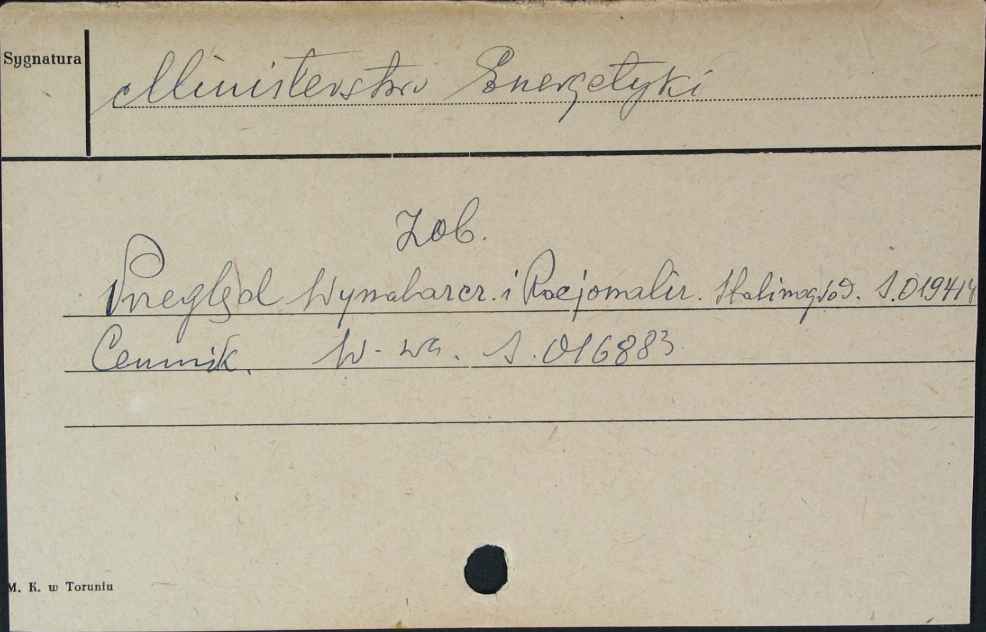 Sygnatura
Ministerstwo Energetyki
Zob.
Przegląd Wynalazcz. i Racjonaliz. Stalinogród. S.01941
Cennik. W-wa. S.016883
M. K. w Toruniu